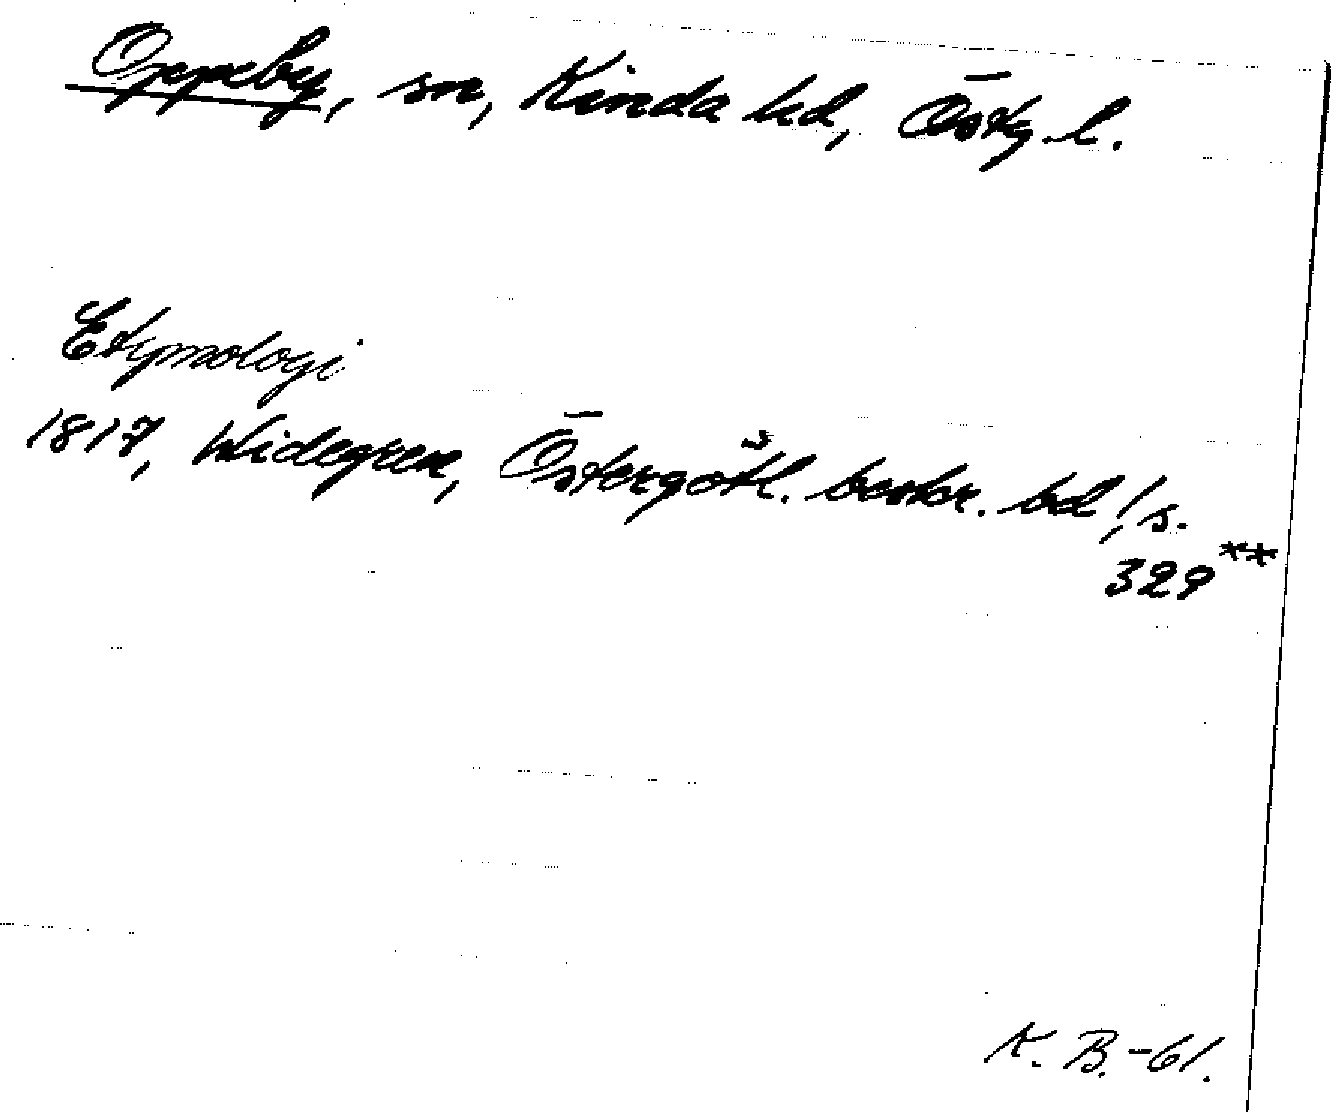 Oppeby, sn, Kinda hd, Östg. l.
Etymologi
1817, Widegren, Östergötl. beskr. bd 1, s.
329**
K. B. -61.